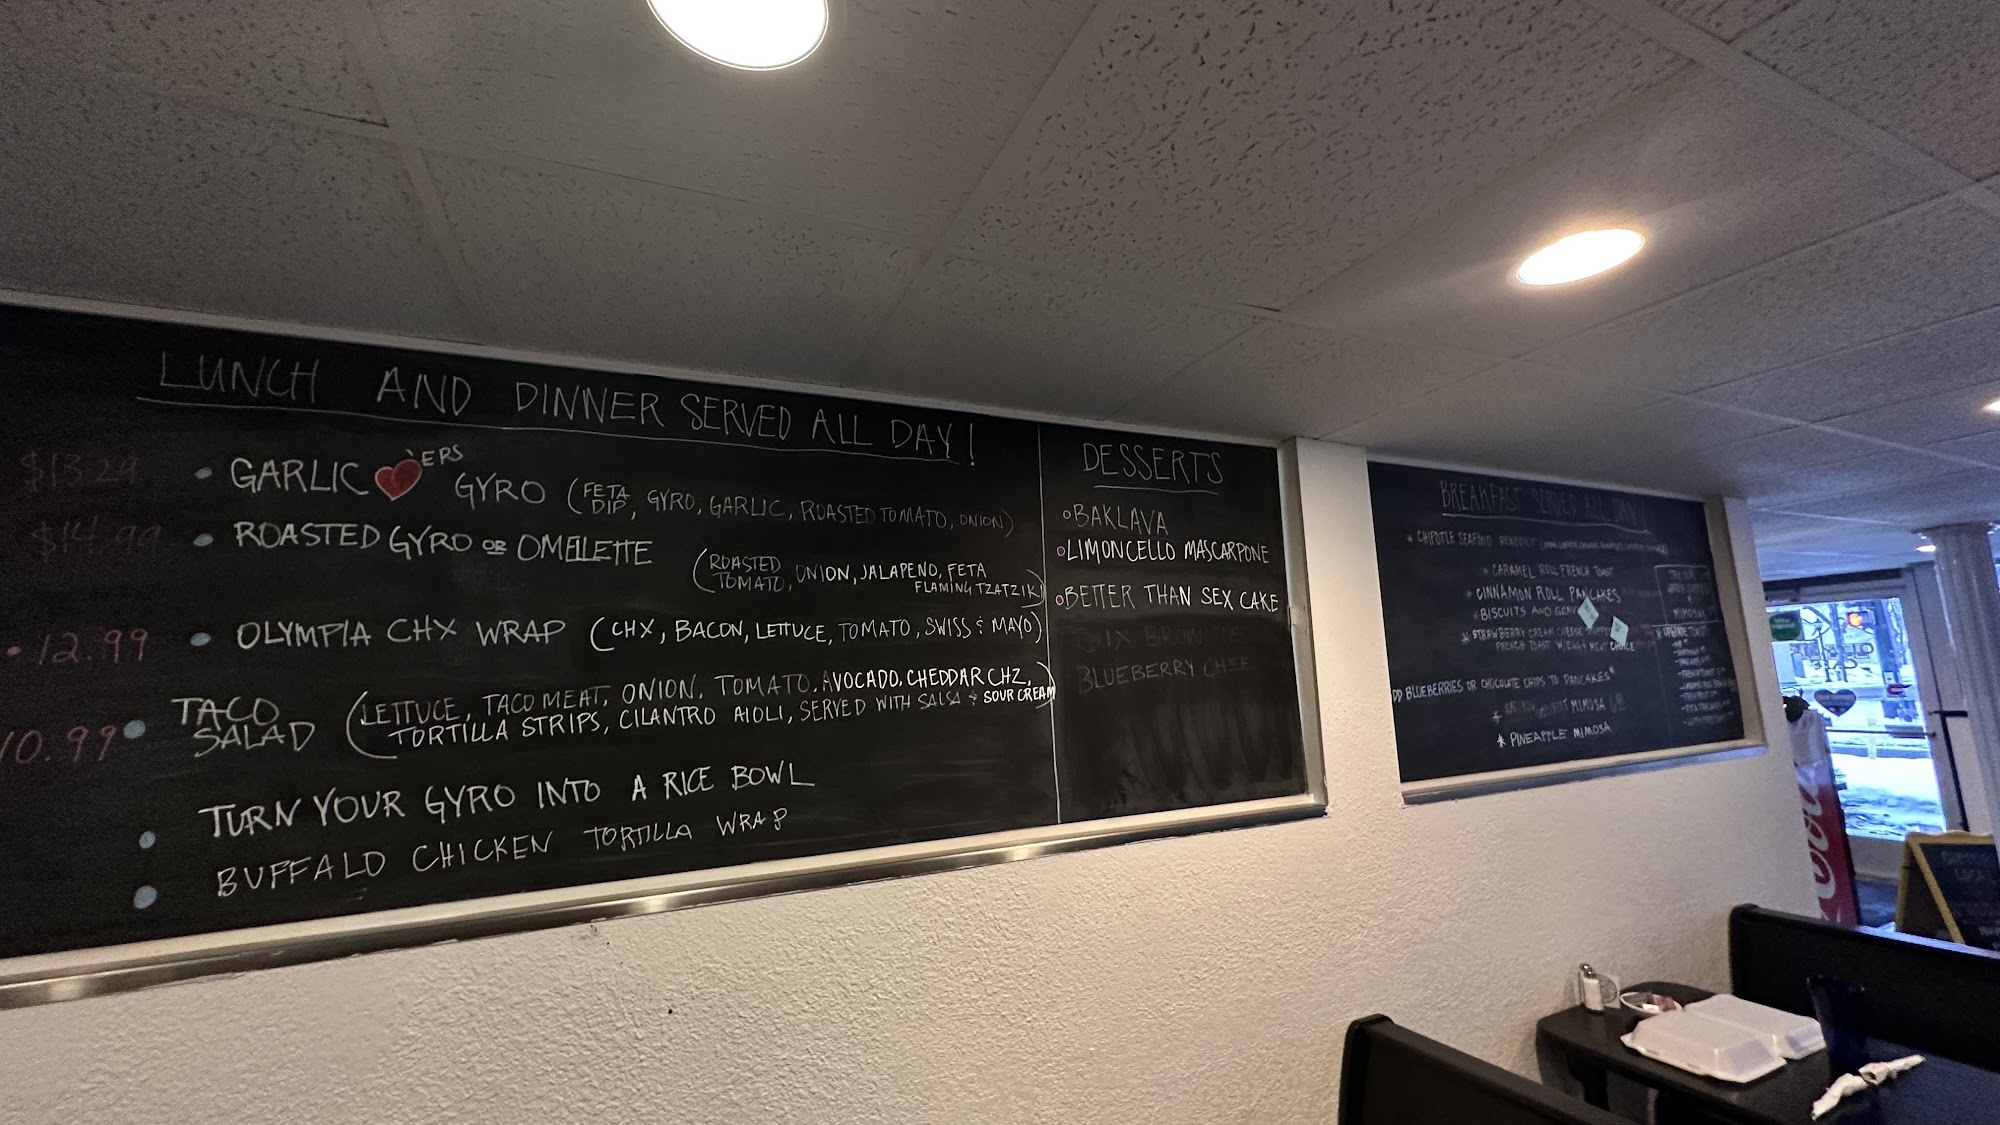 LUNCH AND DINNER SERVED ALL DAY!
$13.29 • GARLIC ❤'ERS GYRO (FETA DIP, GYRO, GARLIC, ROASTED TOMATO, ONION)
$14.99 • ROASTED GYRO OR OMELLETTE (ROASTED TOMATO, ONION, JALAPENO, FETA
FLAMING TZATZIKI)
12.99 • OLYMPIA CHX WRAP (CHX, BACON, LETTUCE, TOMATO, SWISS & MAYO)
10.99 • TACO SALAD (LETTUCE, TACO MEAT, ONION, TOMATO, AVOCADO, CHEDDAR CHZ,
TORTILLA STRIPS, CILANTRO AIOLI, SERVED WITH SALSA & SOUR CREAM)
• TURN YOUR GYRO INTO A RICE BOWL
• BUFFALO CHICKEN TORTILLA WRAP
DESSERTS
BAKLAVA
LIMONCELLO MASCARPONE
BETTER THAN SEX CAKE
BLUEBERRY
BREAKFAST SERVED ALL DAY!
* CHIPOTLE SEAFOOD BENEDICT
* CARAMEL ROLL FRENCH TOAST
* CINNAMON ROLL PANCAKES
* BISCUITS AND
* STRAWBERRY CREAM CHEESE
FRENCH TOAST W/EGG & MEAT CHOICE
BLUEBERRIES OR CHOCOLATE CHIPS TO PANCAKES*
* MIMOSA
* PINEAPPLE MIMOSA